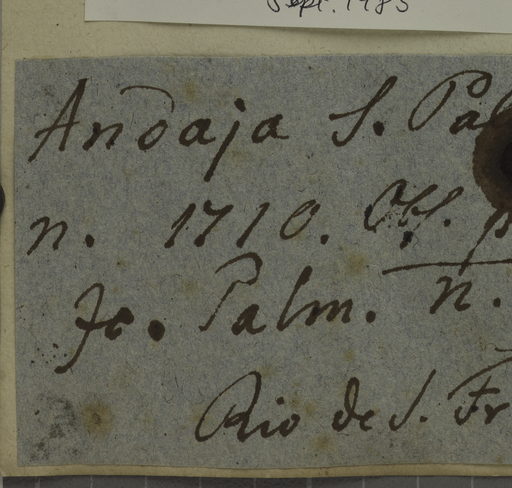 Sept. 1985
Andaja S. Pal
n. 1710. Obs. p
Ic. Palm. n.
Rio de S. Fr